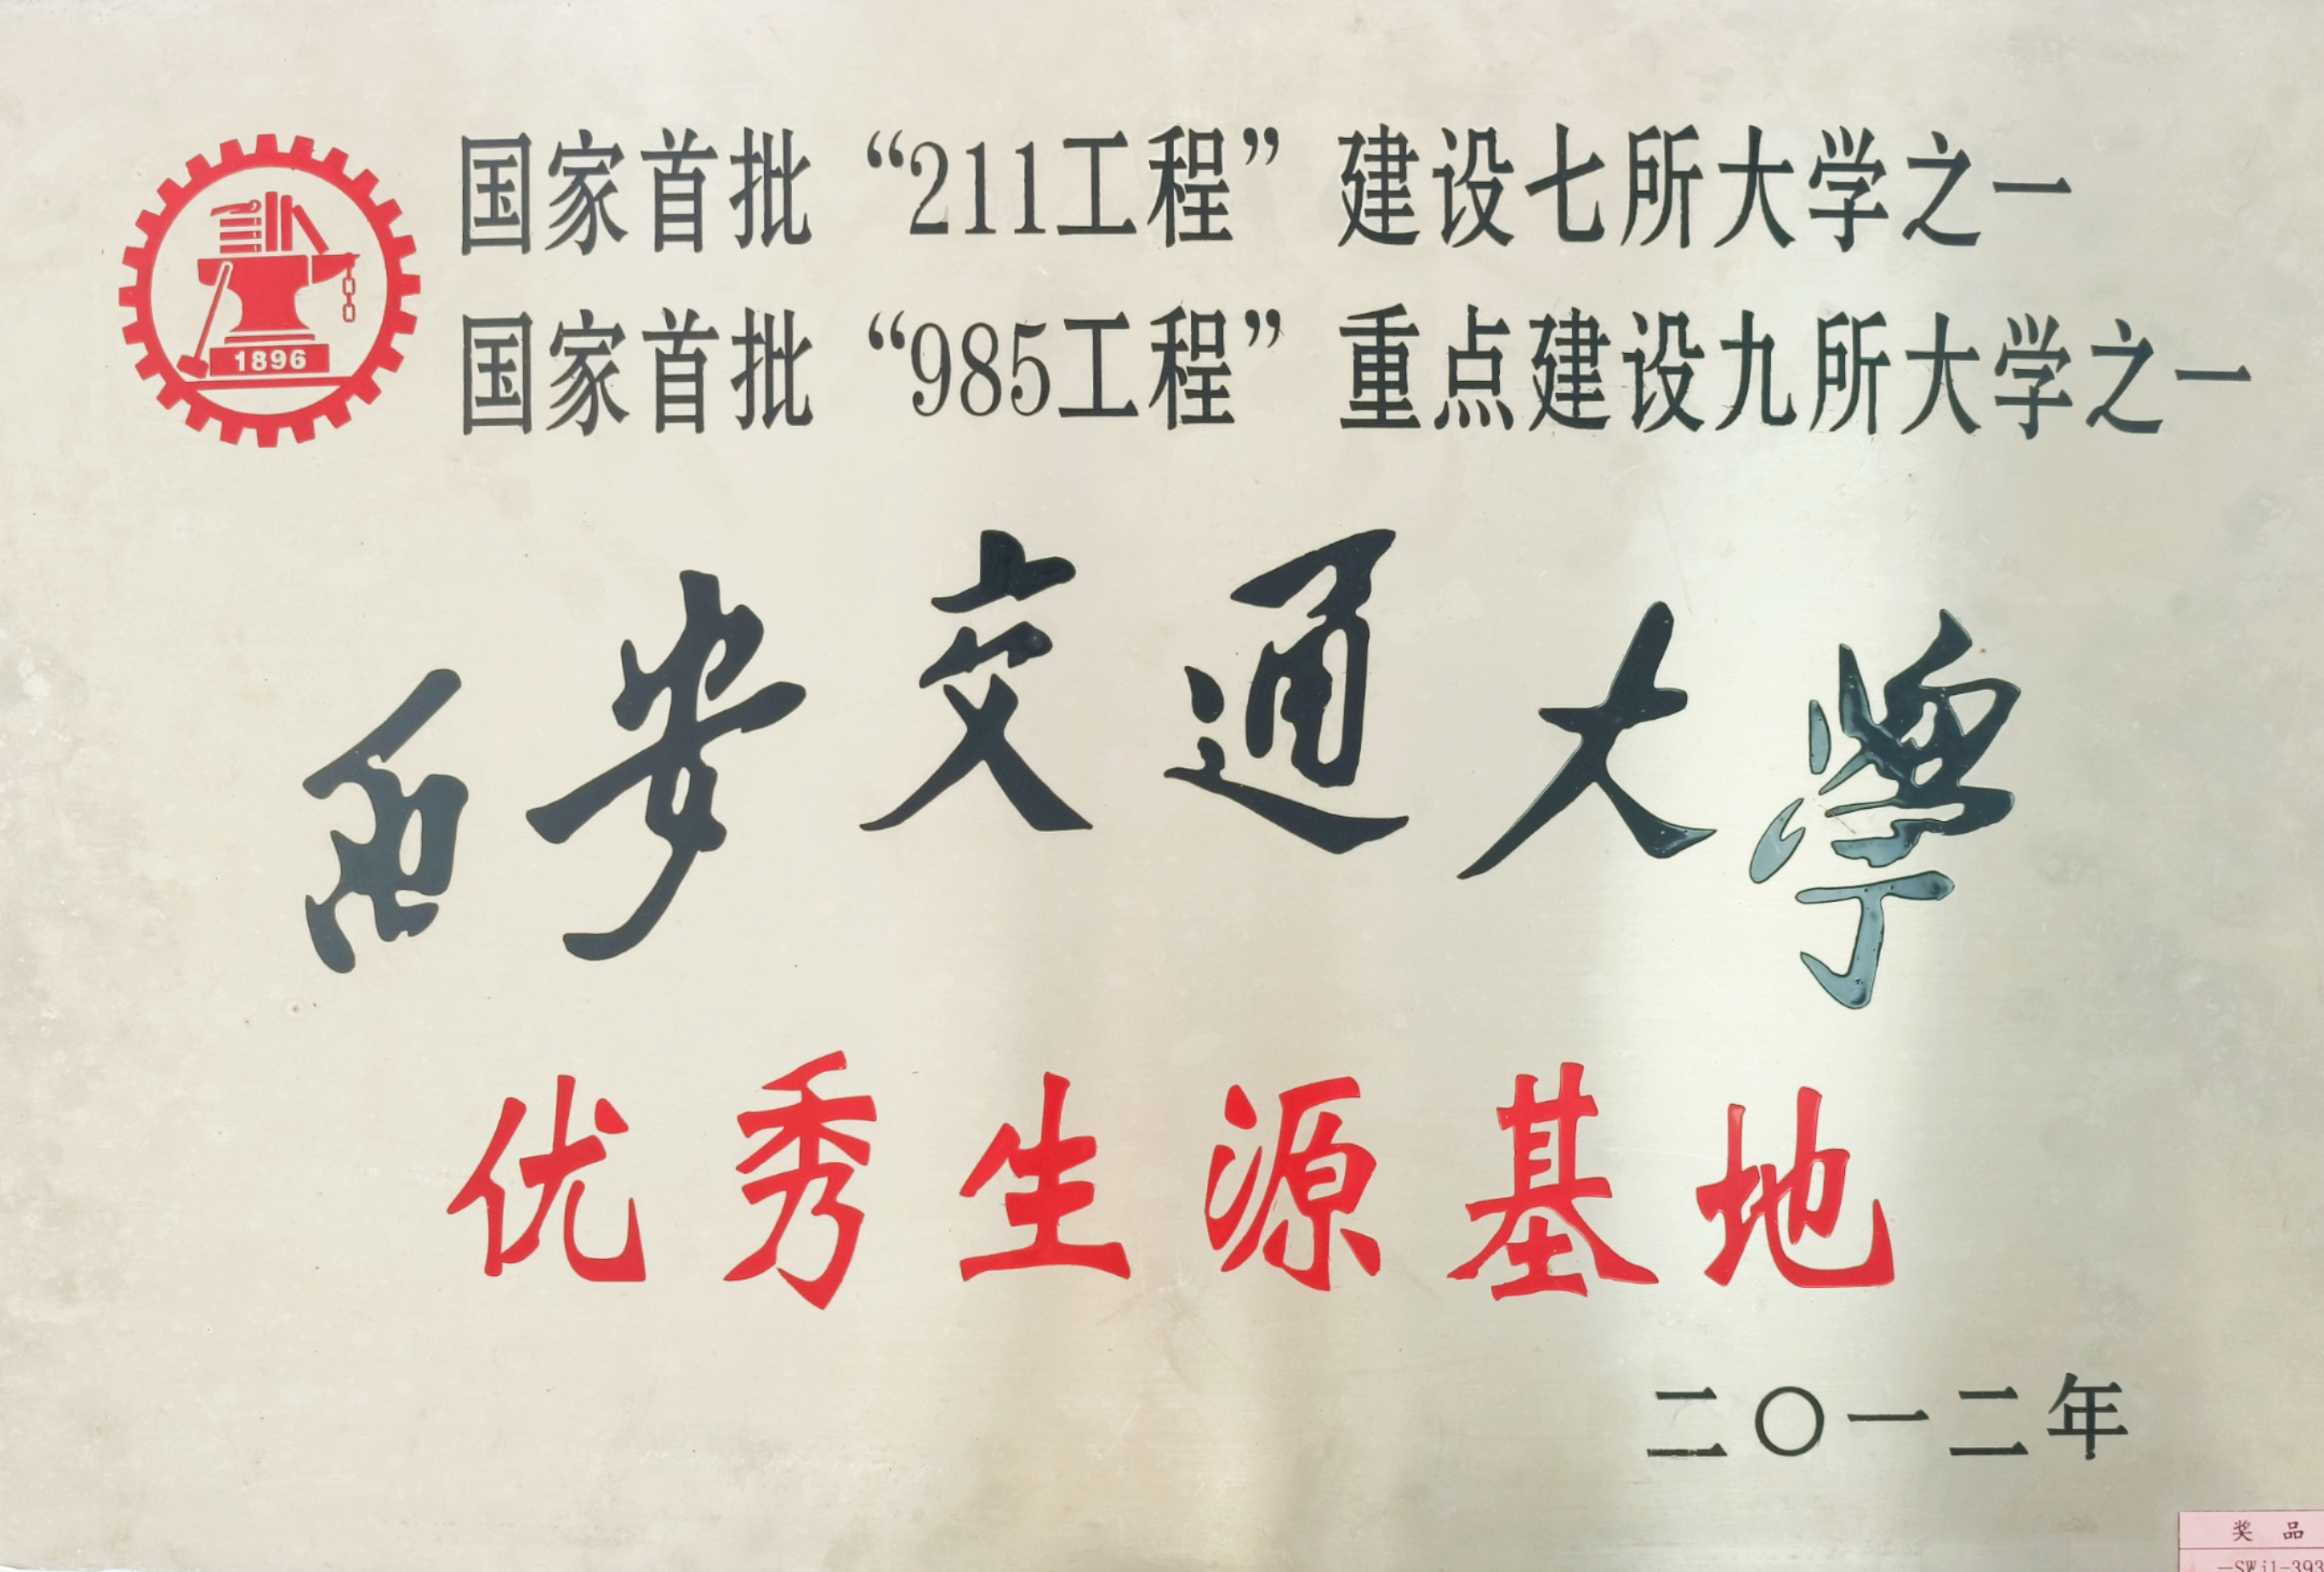 国家首批“211工程”建设七所大学之一
国家首批“985工程”重点建设九所大学之一
1896
西安交通大學
优秀生源基地
二〇一二年
奖品
—SWjl-393